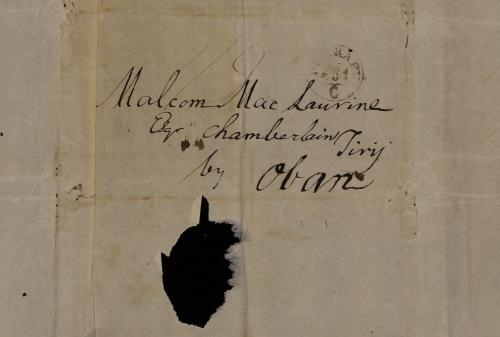 Malcom Mac Laurine
Esqr Chamberlain Tirij
by Oban